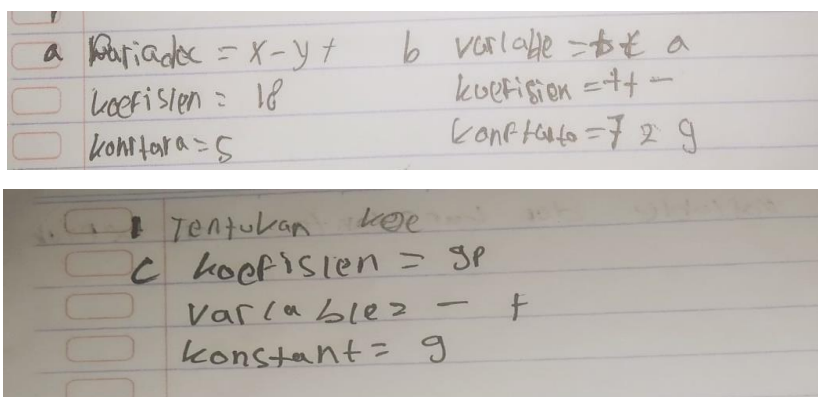 a Variadec = x - y +
koefisien = 18
konstara = 5
b variable = t a
koefisien = + + -
konstanto = 7 2 9
1 Tentukan koe
c koefisien = 9p
variable2 - +
konstant = 9